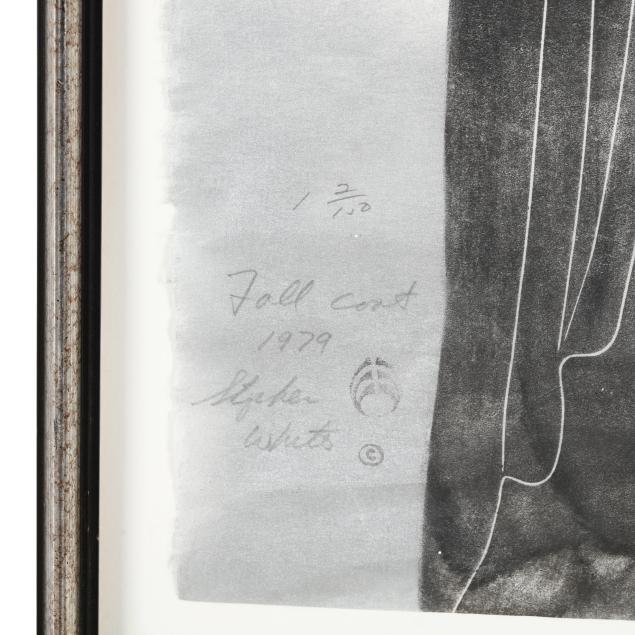 1 2/150
Fall coat
1979
Stephen
White
©